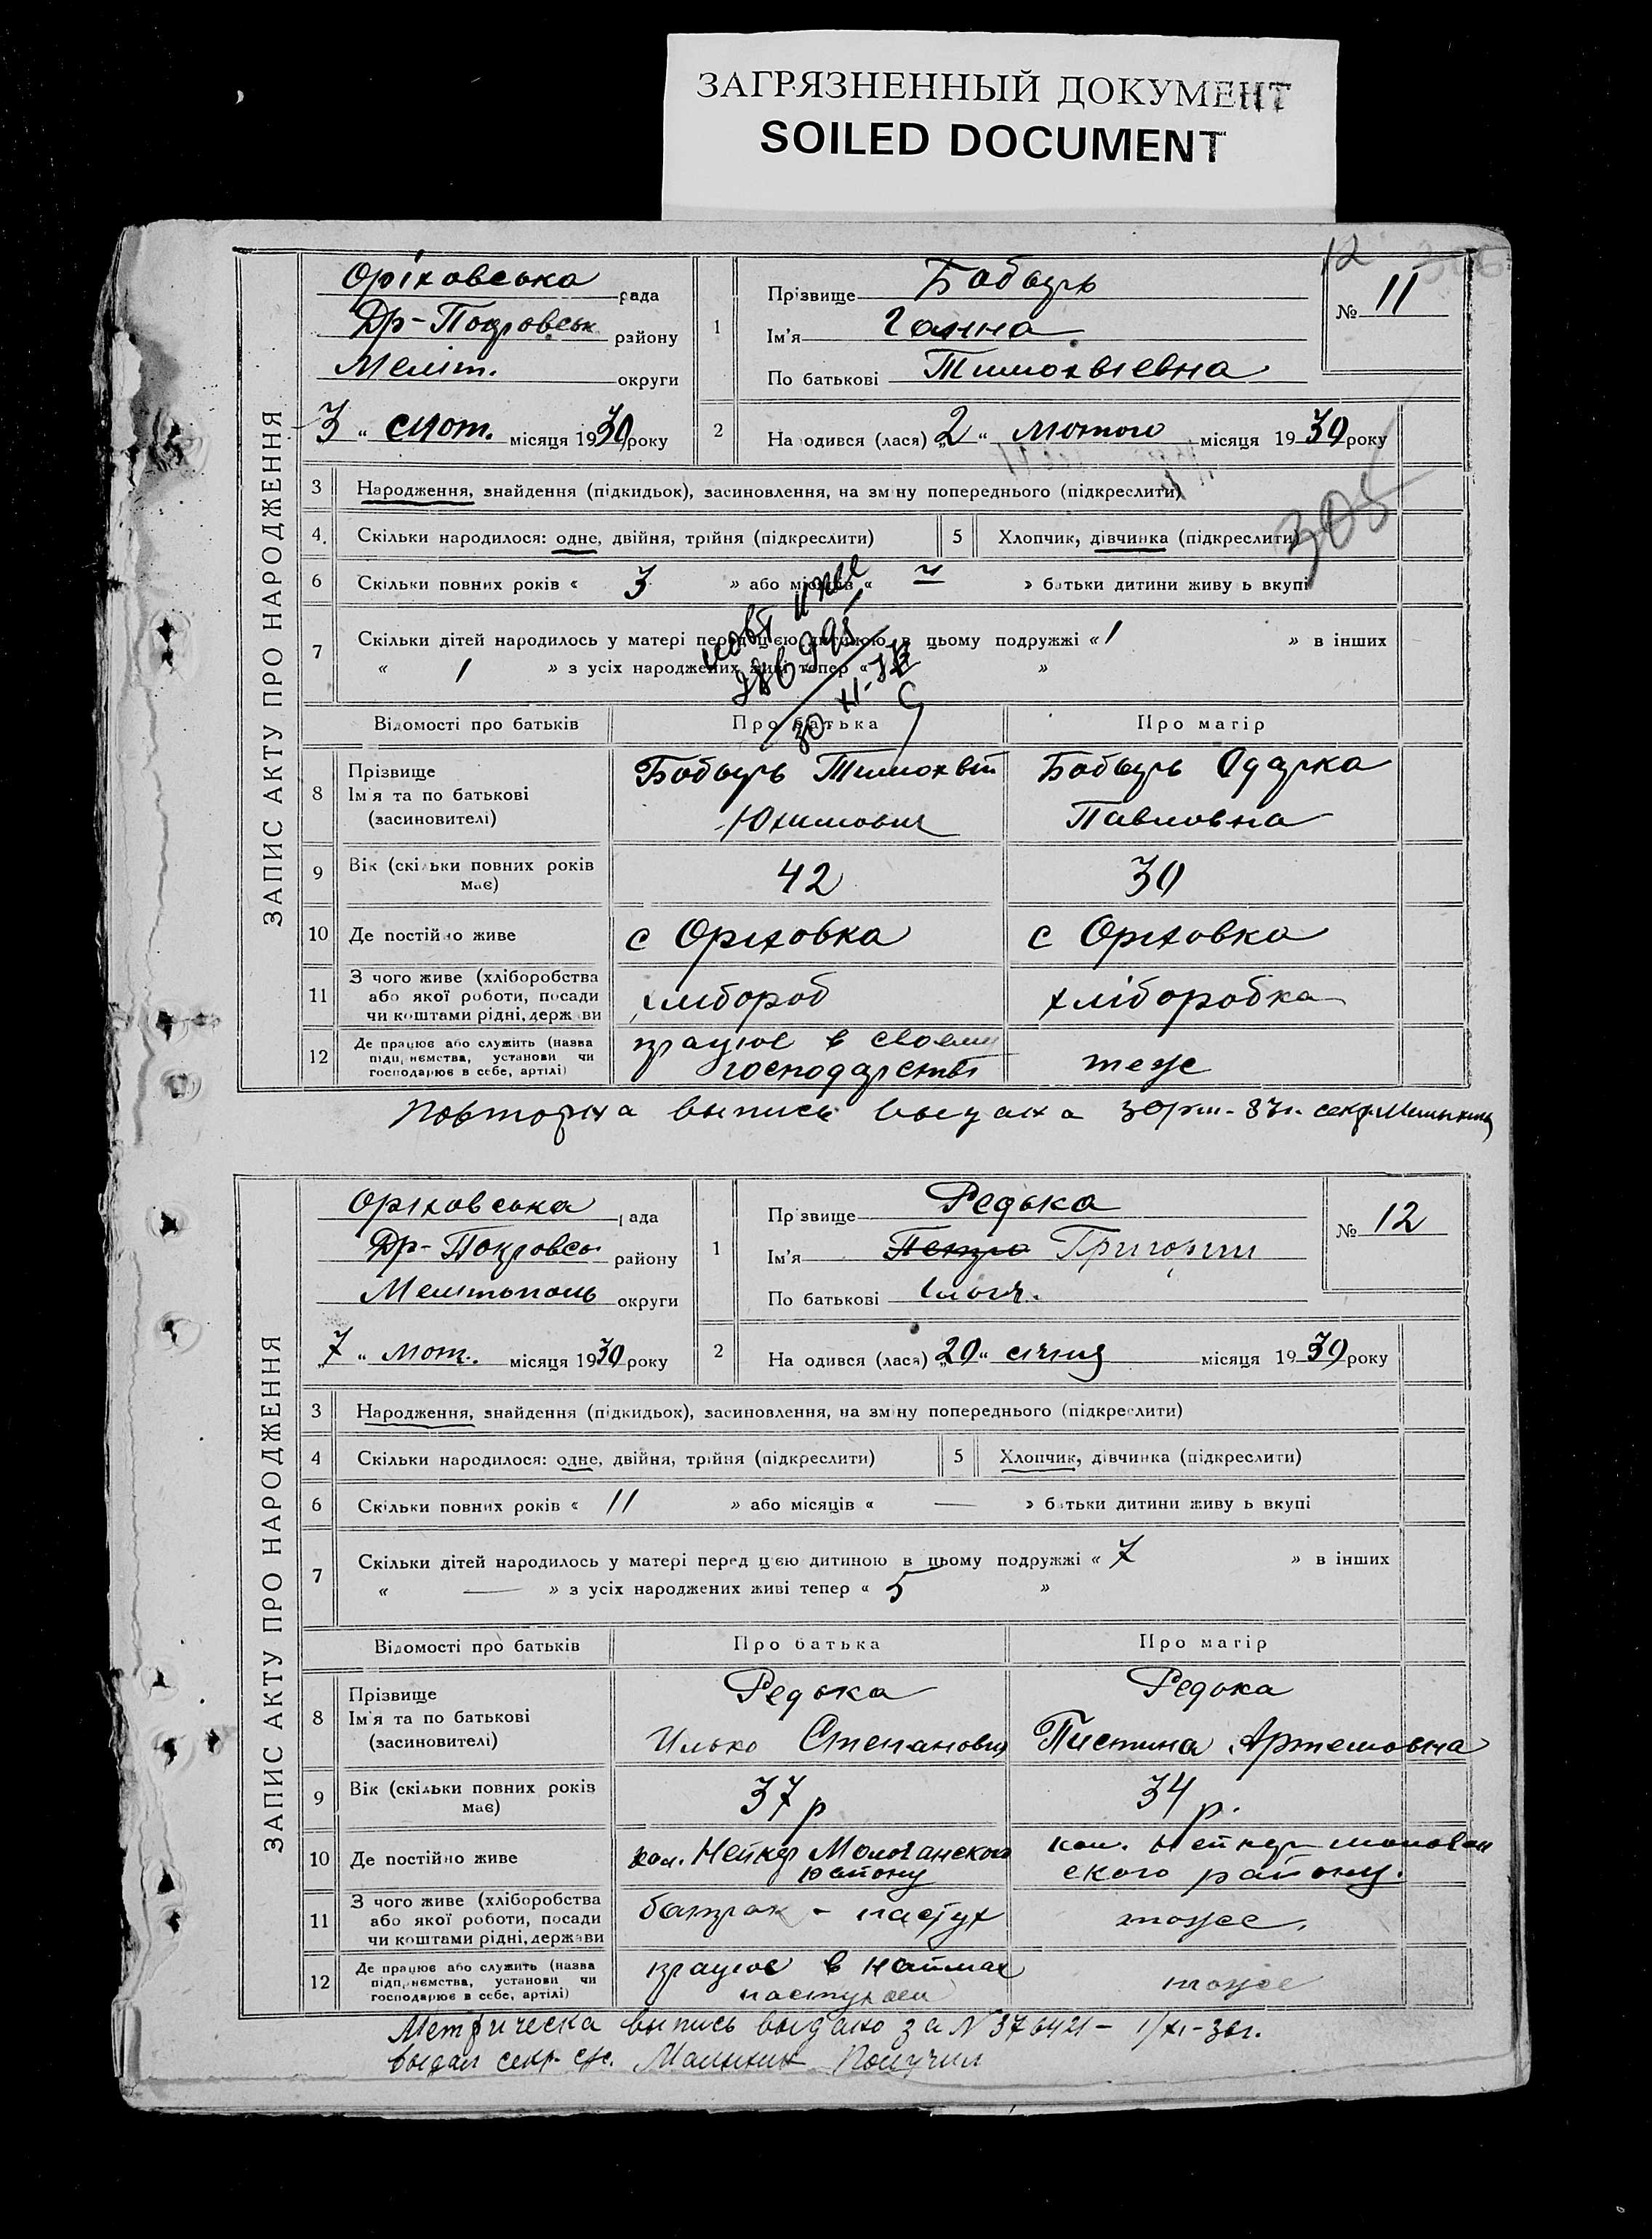 ЗАГРЯЗНЕННЫЙ ДОКУМЕНТ
SOILED DOCUMENT
12
ЗАПИС АКТУ ПРО НАРОДЖЕННЯ
Оріховська рада
Др-Покровськ району
Меліт. округи
3 " лют. місяця 1930 року
1
Прізвище Бобырь
Ім'я Ганна
По батькові Тимохвіевна
№ 11
2 На одився (лася) „2" лютого місяця 1930 року
305
3 Народження, знайдення (підкидьок), засиновлення, на зміну попереднього (підкреслити)
4. Скільки народилося: одне, двійня, трійня (підкреслити)
5 Хлопчик, дівчинка (підкреслити)
6 Скільки повних років « 3 » або місяців « » батьки дитини живу ь вкупі
7 Скільки дітей народилось у матері перед цією дитиною в цьому подружжі « 1 » в інших
« 1 » з усіх народжених живі тепер « »
Відомості про батьків Про батька Про матір
8 Прізвище
Ім'я та по батькові
(засиновителі)
Бобырь Тимохвій
Юхимович
Бобырь Одарка
Павловна
9 Вік (скільки повних років має) 42 30
10 Де постійно живе с Оріховка с Оріховка
11 З чого живе (хліборобства
або якої роботи, посади
чи коштами рідні, держави
хлібороб хліборобка
12 Де працює або служить (назва
підприємства, установи чи
господарює в себе, артілі)
працює в своему
господарстві
теж
Повторна выпись выдана
ЗАПИС АКТУ ПРО НАРОДЖЕННЯ
Оріховська рада
Др-Покровсь. району
Мелітополь округи
„7 " лют. місяця 1930 року
1
Прізвище Редька
Ім'я Петро Григорий
По батькові Ілліч.
№ 12
2 На одився (лася) „20" січня місяця 1930 року
3 Народження, знайдення (підкидьок), засиновлення, на зміну попереднього (підкреслити)
4 Скільки народилося: одне, двійня, трійня (підкреслити)
5 Хлопчик, дівчинка (підкреслити)
6 Скільки повних років « 11 » або місяців « — » батьки дитини живу ь вкупі
7 Скільки дітей народилось у матері перед цією дитиною в цьому подружжі « 7 » в інших
« — » з усіх народжених живі тепер « 5 »
Відомості про батьків Про батька Про матір
8 Прізвище
Ім'я та по батькові
(засиновителі)
Редька
Илько Степанович
Редька
Пистина Артемовна
9 Вік (скільки повних років має) 37 р 34 р.
10 Де постійно живе
кол. Нейкер Молочанского
району
кол. Нейкер
ского району.
11 З чого живе (хліборобства
або якої роботи, посади
чи коштами рідні, держави
батрак - пастух тоже
12 Де працює або служить (назва
підприємства, установи чи
господарює в себе, артілі)
працює в наймах
пастухом
тоже
Метрическа выпись выдано за N 376421 -
выдал секр. Получил